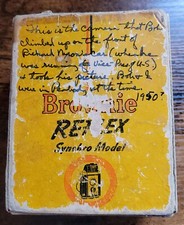 This is the camera that Bob
climbed up on the front of
Richard Nixon's car (when he
was running for Vice Pres. U.S.)
& took his picture. Bob & I
was in at the time.
1950?
Brownie
REFLEX
Synchro Model